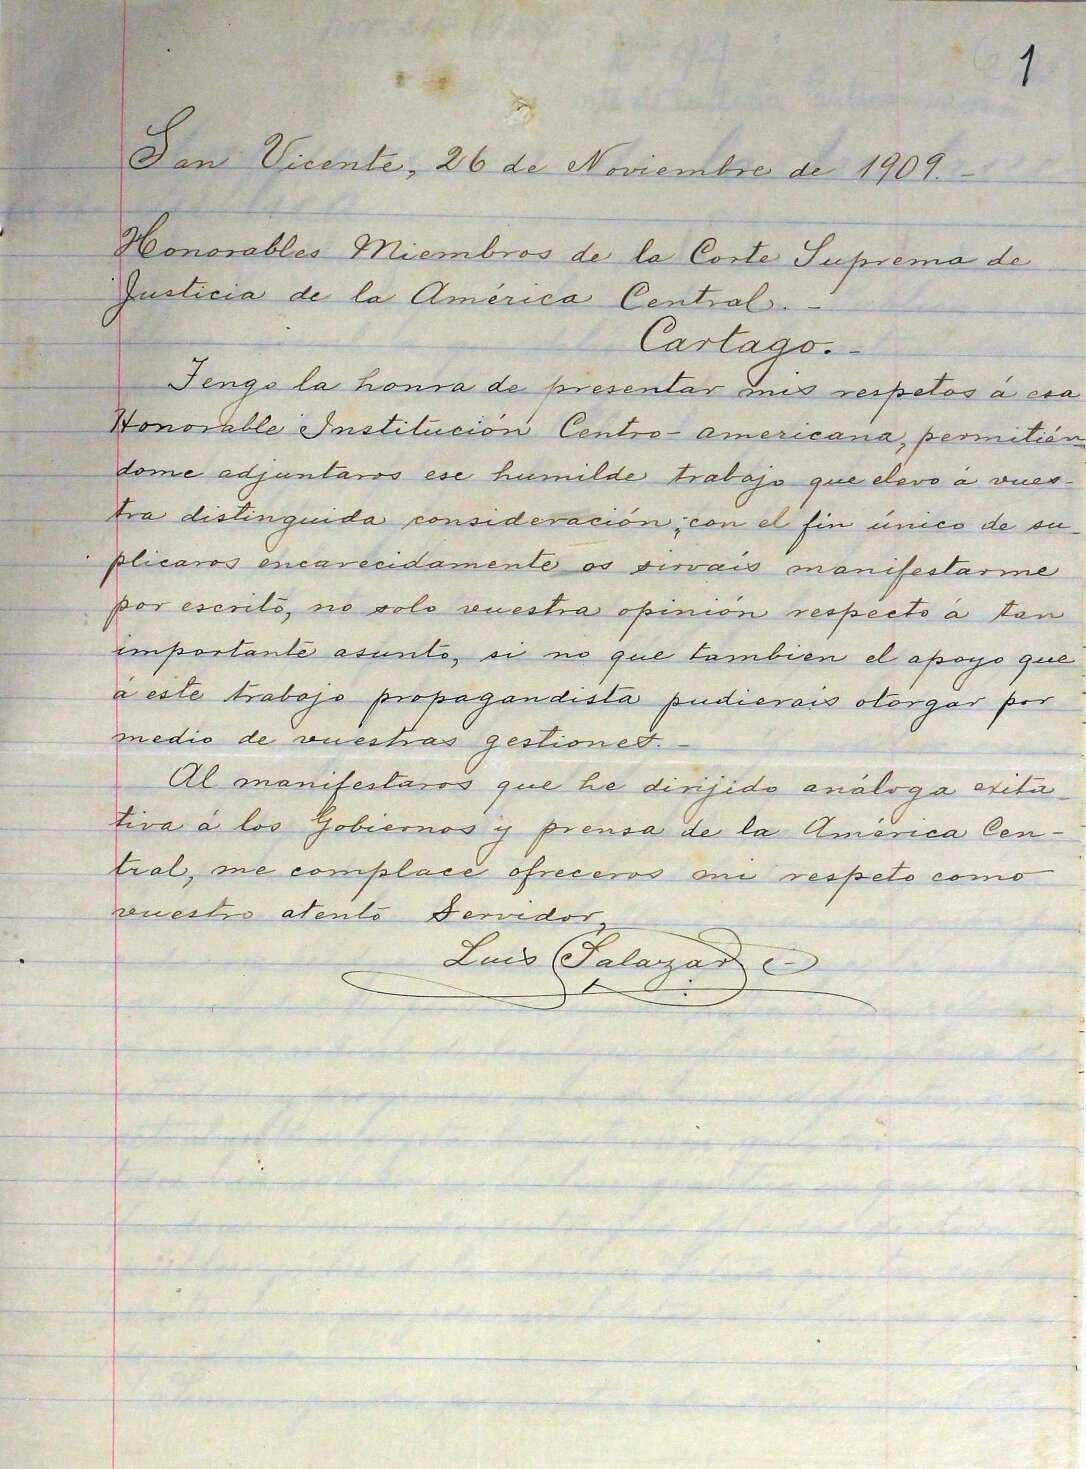 1
San Vicente, 26 de Noviembre de 1909.-
Honorables Miembros de la Corte Suprema de
Justicia de la América Central.-
Cartago.-
Tengo la honra de presentar mis respetos á esa
Honorable Institución Centro-americana, permitién-
dome adjuntaros ese humilde trabajo que elevo á vues-
tra distinguida consideración; con el fin único de su-
plicaros encarecidamente os sirváis manifestarme
por escrito, no solo vuestra opinión respecto á tan
importante asunto, si no que tambien el apoyo que
á este trabajo propagandista pudierais otorgar por
medio de vuestras gestiones.-
Al manifestaros que he dirijido análoga exita-
tiva á los Gobiernos y prensa de la América Cen-
tral, me complace ofreceros mi respeto como
vuestro atento Servidor,
Luis Salazar